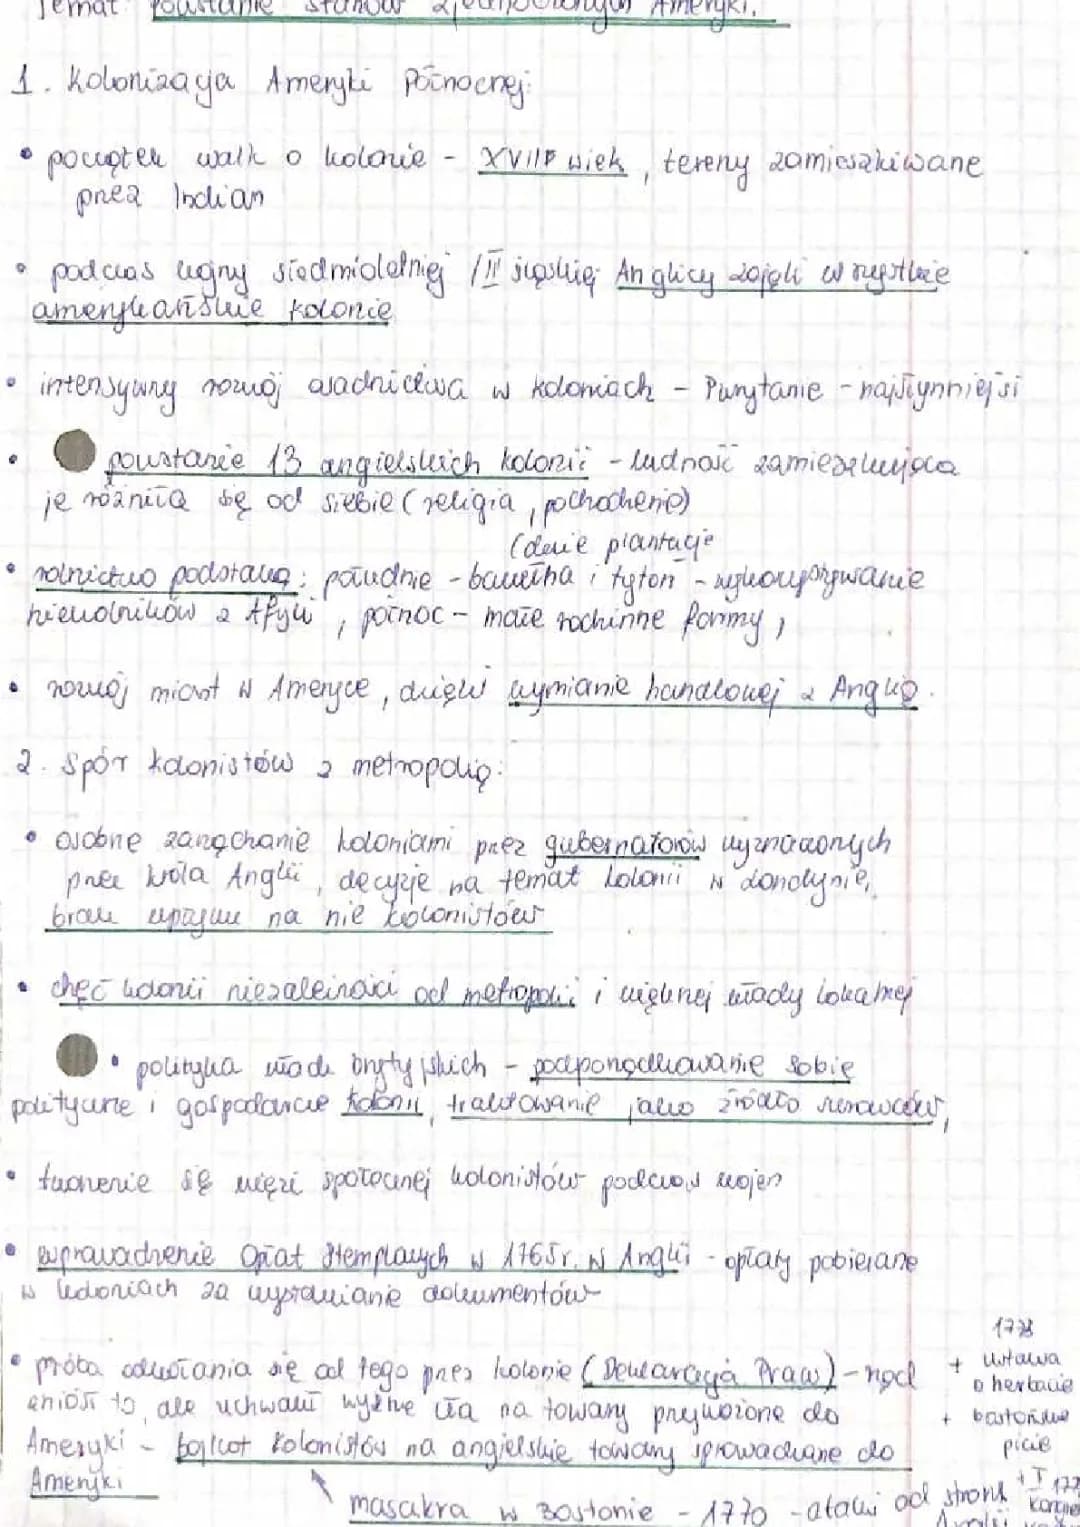 Temat: Powstanie Stanów Zjednoczonych Ameryki.
1. Kolonizacja Ameryki Północnej:
• początek walk o kolonie - XVIII wiek, tereny zamieszkiwane
przez Indian
• podczas wojny siedmioletniej / II śląskiej Anglicy zajęli wszystkie
amerykańskie kolonie
• intensywny rozwój osadnictwa w koloniach - Purytanie - najsłynniejsi
• powstanie 13 angielskich kolonii - ludność zamieszkująca
je różniła się od siebie (religia, pochodzenie)
(duże plantacje
• rolnictwo podstawą: południe - bawełna i tytoń - wykorzystywanie
niewolników z Afryki, północ - małe rodzinne farmy,
• rozwój miast w Ameryce, dzięki wymianie handlowej z Anglią.
2. Spór kolonistów z metropolią:
• osobne zarządzanie koloniami przez gubernatorów wyznaczonych
przez króla Anglii, decyzje na temat kolonii w Londynie,
brak wpływu na nie kolonistów
• chęć kolonii niezależności od metropolii i większej władzy lokalnej
• polityka władz brytyjskich - podporządkowanie sobie
polityczne i gospodarcze kolonii, traktowanie jako źródło surowców,
• tworzenie się więzi społecznej kolonistów podczas wojen
• wprowadzenie Opłat Stemplowych w 1765r. w Anglii - opłaty pobierane
w koloniach za wystawianie dokumentów
• próba odwołania się od tego przez kolonie (Deklaracja Praw) - rząd
zniósł to, ale uchwalił wyższe cła na towary przywożone do
Ameryki - bojkot kolonistów na angielskie towary sprowadzane do
Ameryki
1773
+ ustawa
o herbacie
+ bostońskie
picie
+ I 177
masakra w Bostonie - 1770 - ataki od strony